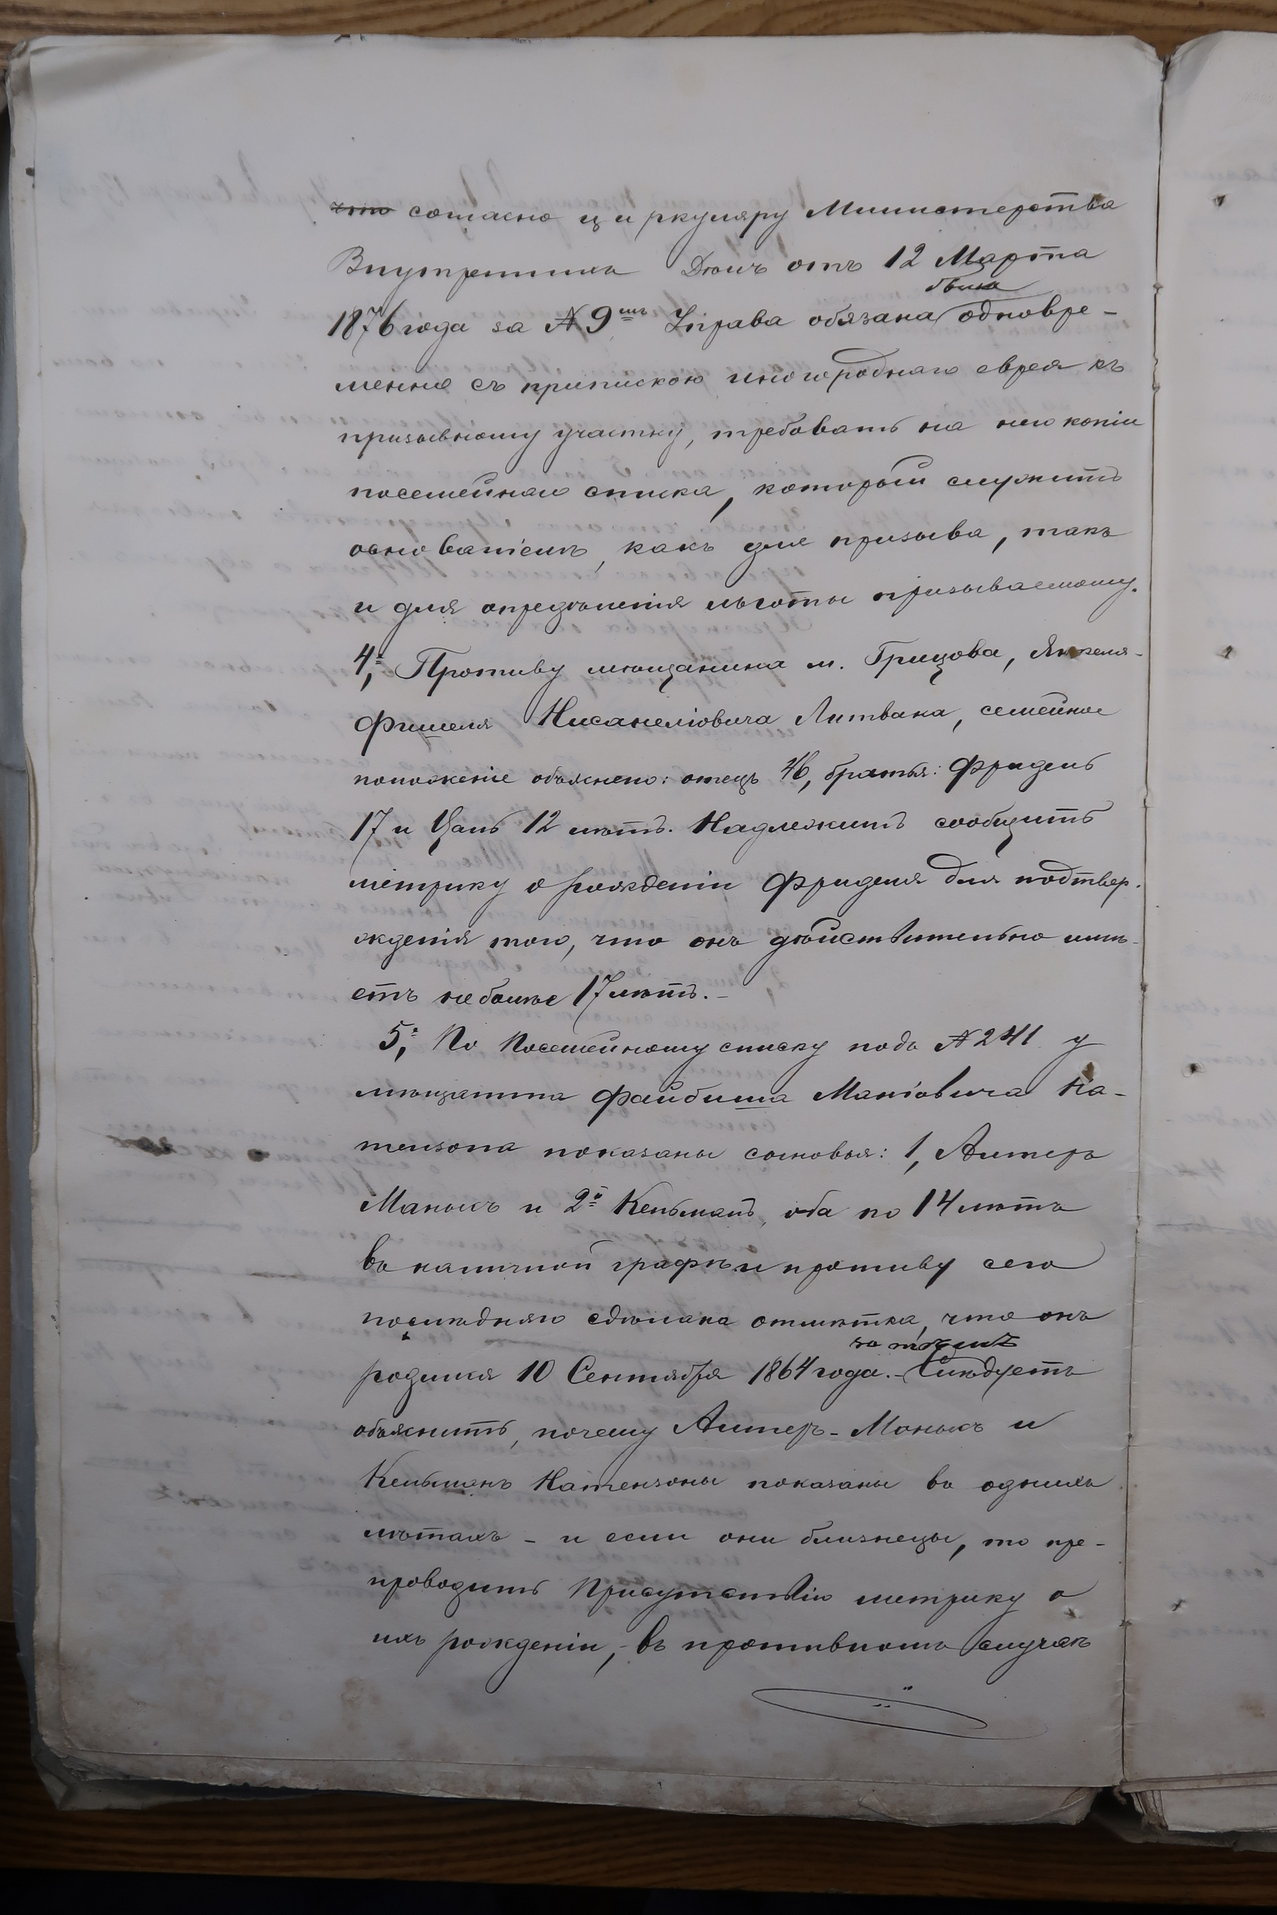 что согласно циркуляру Министерства
Внутреннихъ Дѣлъ отъ 12 Марта
была
1876 года за № 9мъ Управа обязана одновре-
менно съ припискою иногороднаго еврея къ
призывному участку, требовать на него копіи
посемейнаго списка, который служитъ
основаніемъ, какъ для призыва, такъ
и для опредѣленія льготы призываемому.
4, Противу мѣщанина м. Грицова, Янкеля-
Фишеля Нисанеліовича Литвака, семейное
положеніе объяснено: отецъ 46, братья: Фридель
17 и Цаль 12 лѣтъ. Надлежитъ сообщить
метрику о рожденіи Фриделя для подтвер-
жденія того, что онъ дѣйствительно имѣ-
етъ не болѣе 17 лѣтъ.-
5, По Посемейному списку подъ № 241 у
мѣщанина Файбиша Маніовича На-
тензона показаны сыновья: 1, Алтеръ
Манысъ и 2й Кельманъ, оба по 14 лѣтъ
въ наличной графѣ и противу сего
послѣдняго сдѣлана отмѣтка, что онъ
за тѣмъ
родился 10 Сентября 1864 года.- Слѣдуетъ
объяснить, почему Алтеръ-Монысъ и
Кельманъ Натензоны показаны въ однихъ
лѣтахъ - и если они близнецы, то пре-
проводить Присутствію метрику о
ихъ рожденіи, - въ противномъ случаѣ